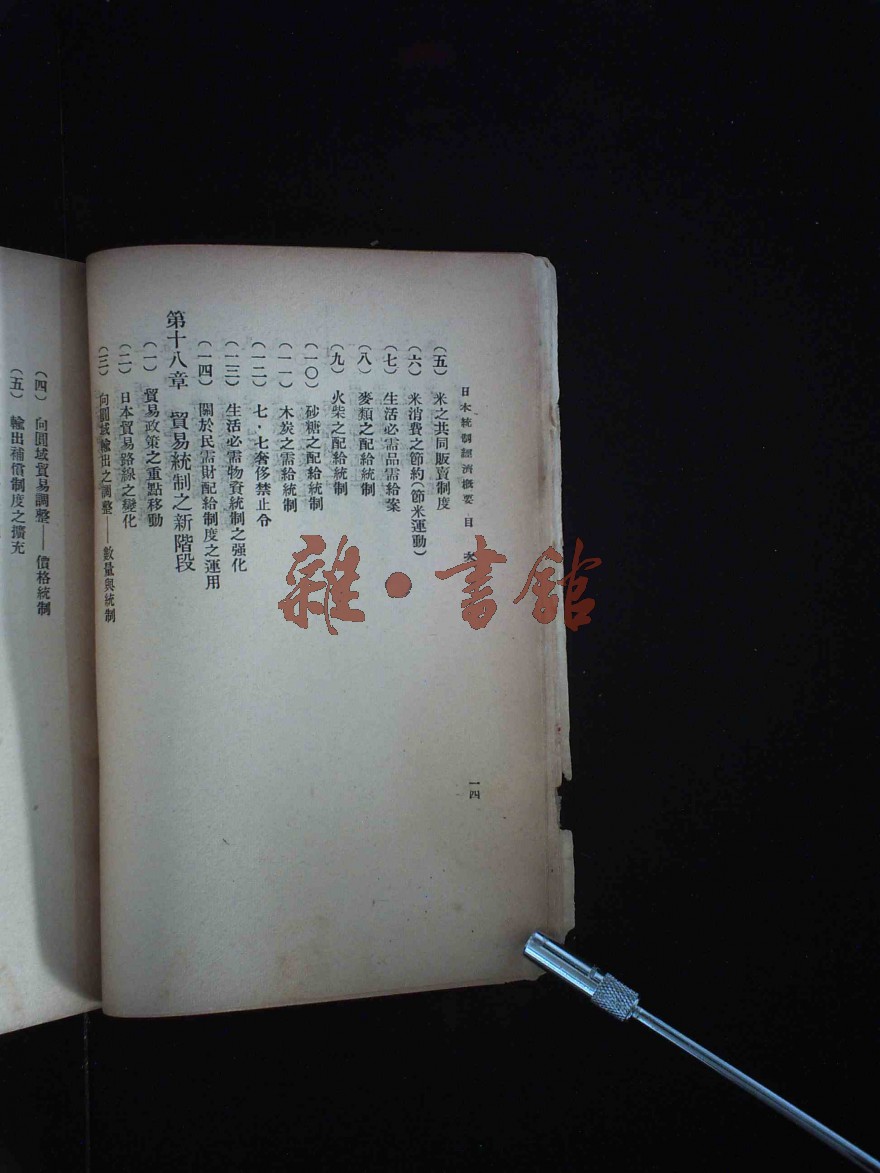 日本統制經濟概要 目 次
(五) 米之共同販賣制度
(六) 米消費之節約(節米運動)
(七) 生活必需品需給案
(八) 麥類之配給統制
(九) 火柴之配給統制
(一〇) 砂糖之配給統制
(一一) 木炭之需給統制
(一二) 七・七奢侈禁止令
(一三) 生活必需物資統制之强化
(一四) 關於民需財配給制度之運用
第十八章 貿易統制之新階段
(一) 貿易政策之重點移動
(二) 日本貿易路線之變化
(三) 向圓域輸出之調整——數量與統制
一四
(四) 向圓域貿易調整——價格統制
(五) 輸出補償制度之擴充
雜・書館